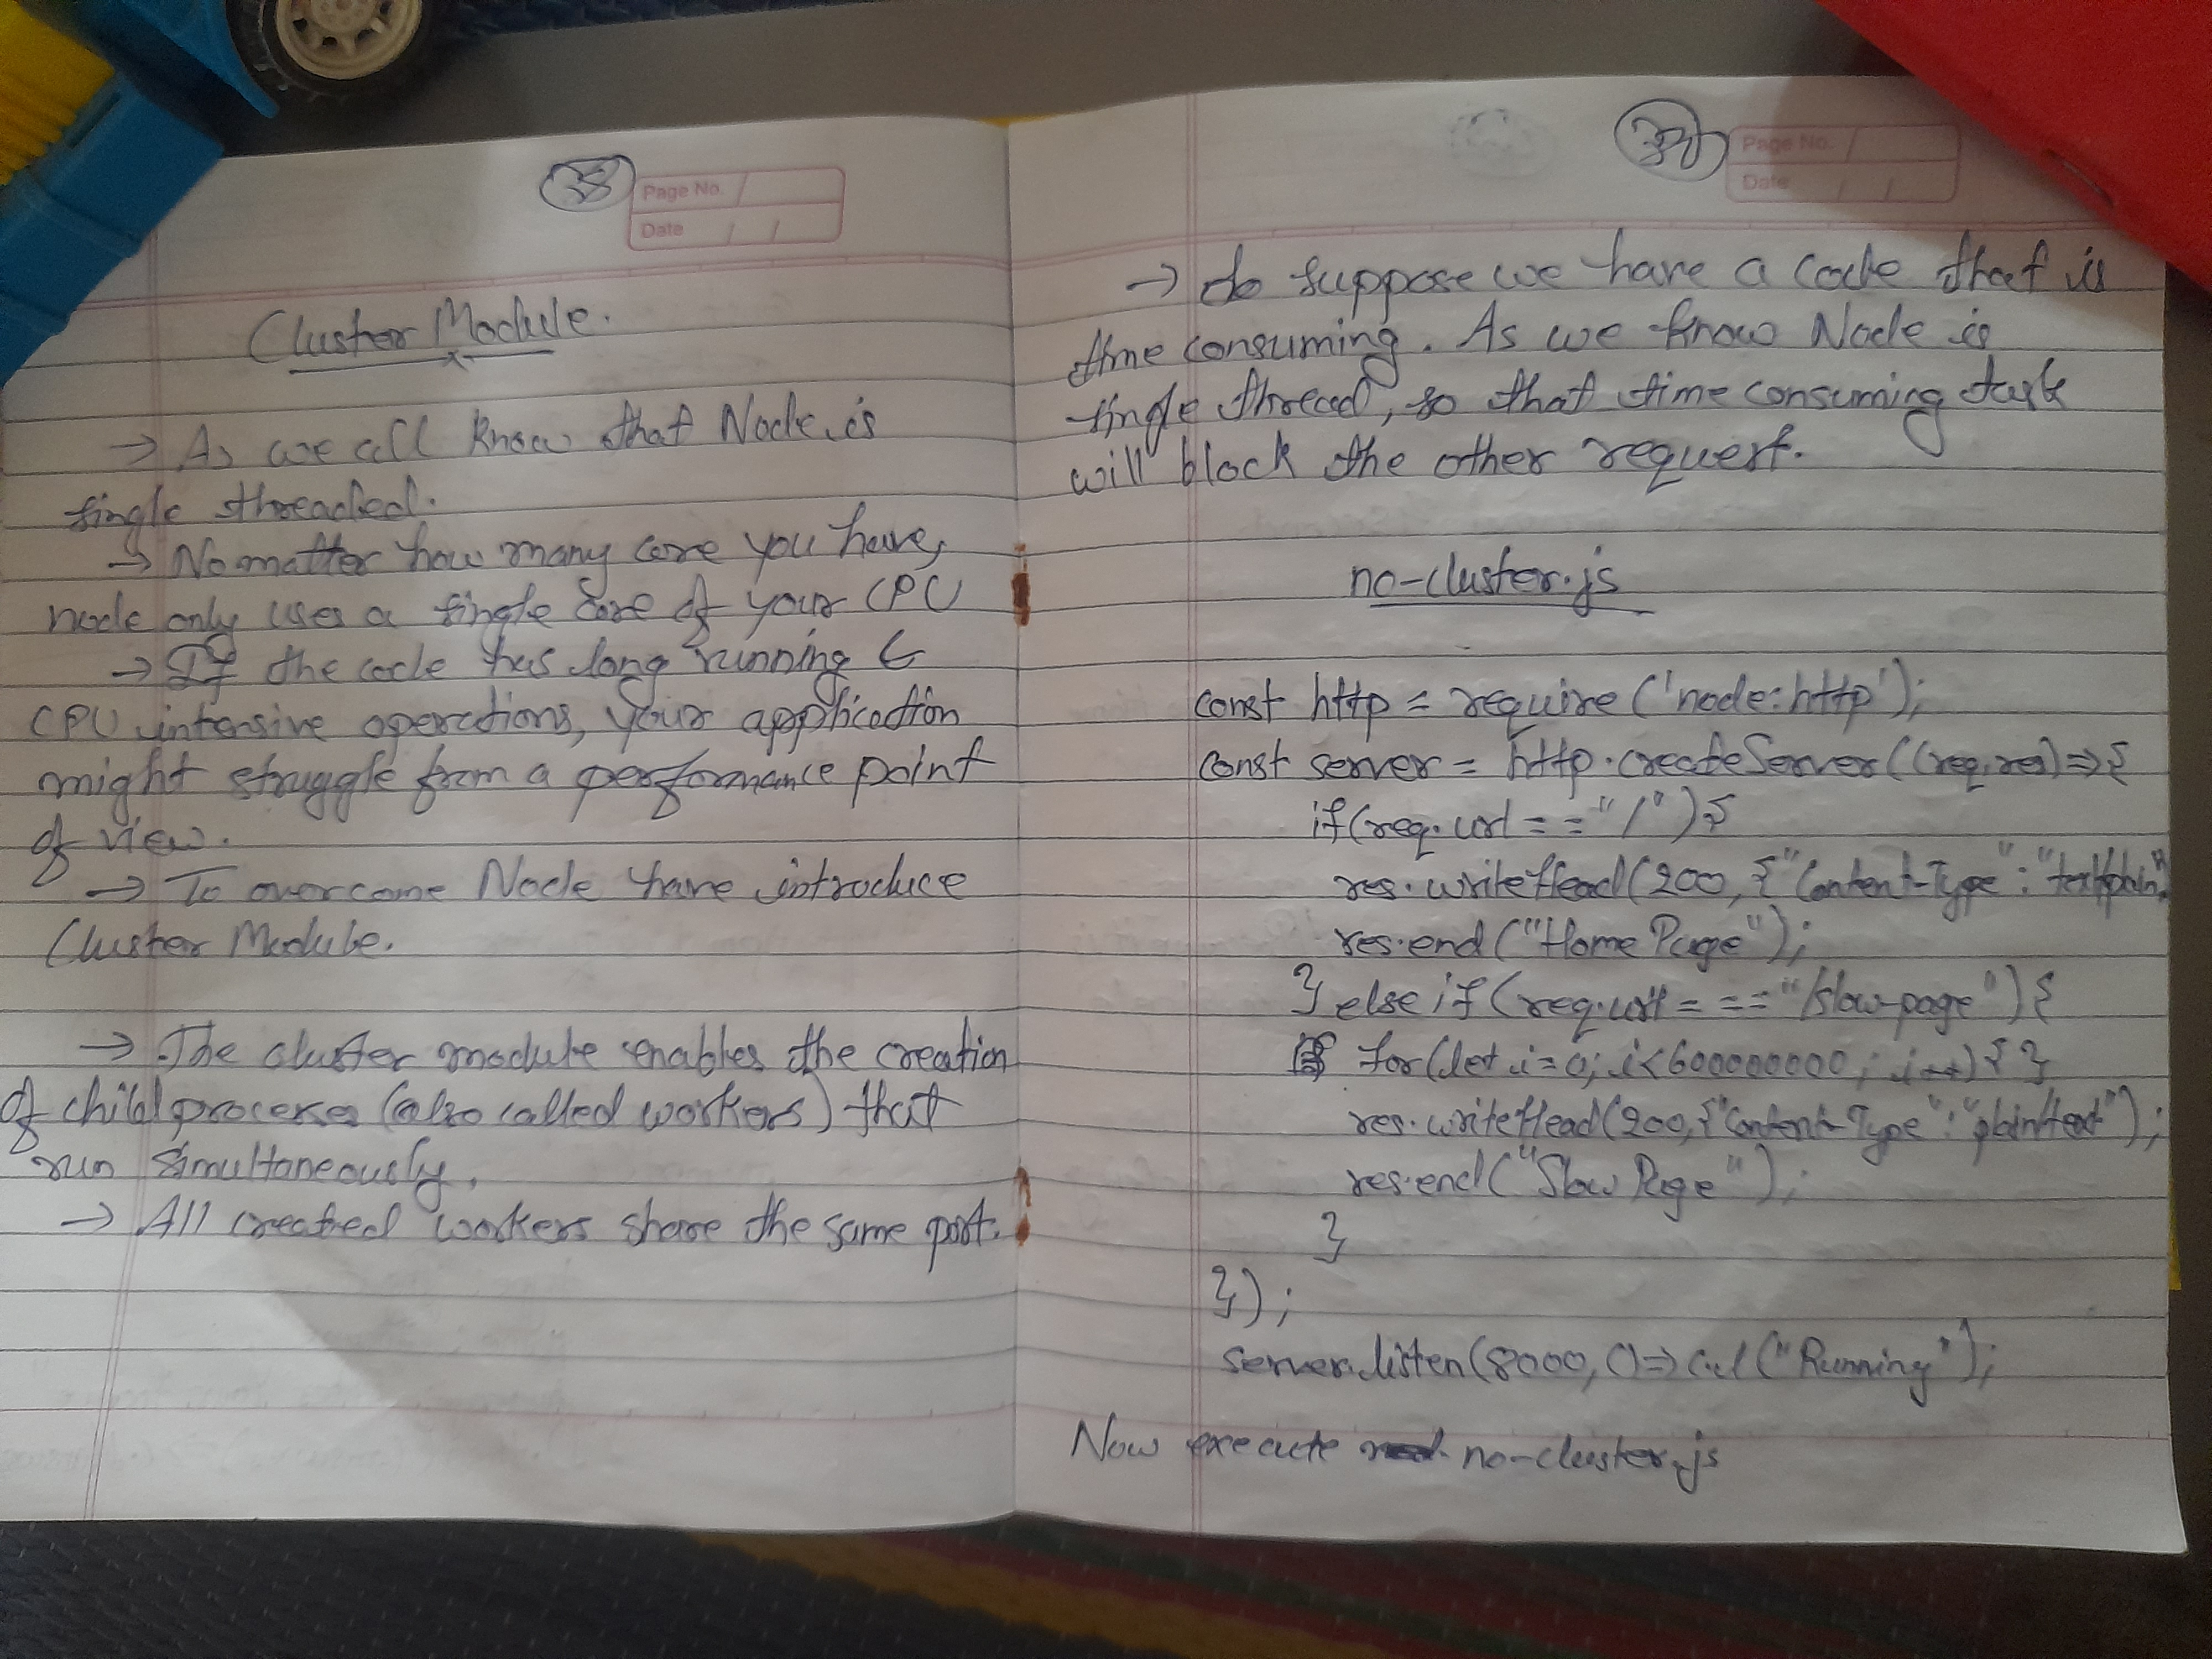 38
Page No.
Date / /
Cluster Module.
→ As we all know that Node is
single threaded.
→ No matter how many core you have,
node only uses a single core of your CPU
→ If the code has long running &
CPU intensive operations, your application
might struggle from a performance point
of view.
→ To overcome Node have introduce
Cluster Module.
→ The cluster module enables the creation
of child processes (also called workers) that
run simultaneously.
→ All created workers share the same port.
Page No.
Date / /
→ So suppose we have a code that is
time consuming. As we know Node is
single thread, so that time consuming task
will block the other request.
no-cluster.js
const http = require('node:http');
const server = http.createServer((req,res)=>{
if(req.url == "/"){
res.writeHead(200, {"Content-Type": "text/plain"
res.end("Home Page");
} else if (req.url === "/slow-page"){
for(let i=0; i<600000000; i++){ }
res.writeHead(200,{"Content-Type":"plain/text");
res.end("Slow Page");
}
});
server.listen(8000, ()=> c.l("Running");
Now execute no-cluster.js